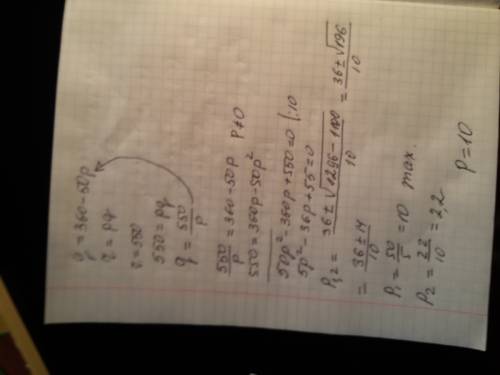 q = 360-50p
r = pq
r = 550
550 = pq
q = 550/p
550/p = 360-50p p≠0
550 = 360p-50p²
50p²-360p+550=0 |:10
5p²-36p+55=0
p₁,₂ = (36±√(1296-1100))/10 = (36±√196)/10
= (36±14)/10
p₁ = 50/5 = 10 max.
p₂ = 22/10 = 2,2
p=10